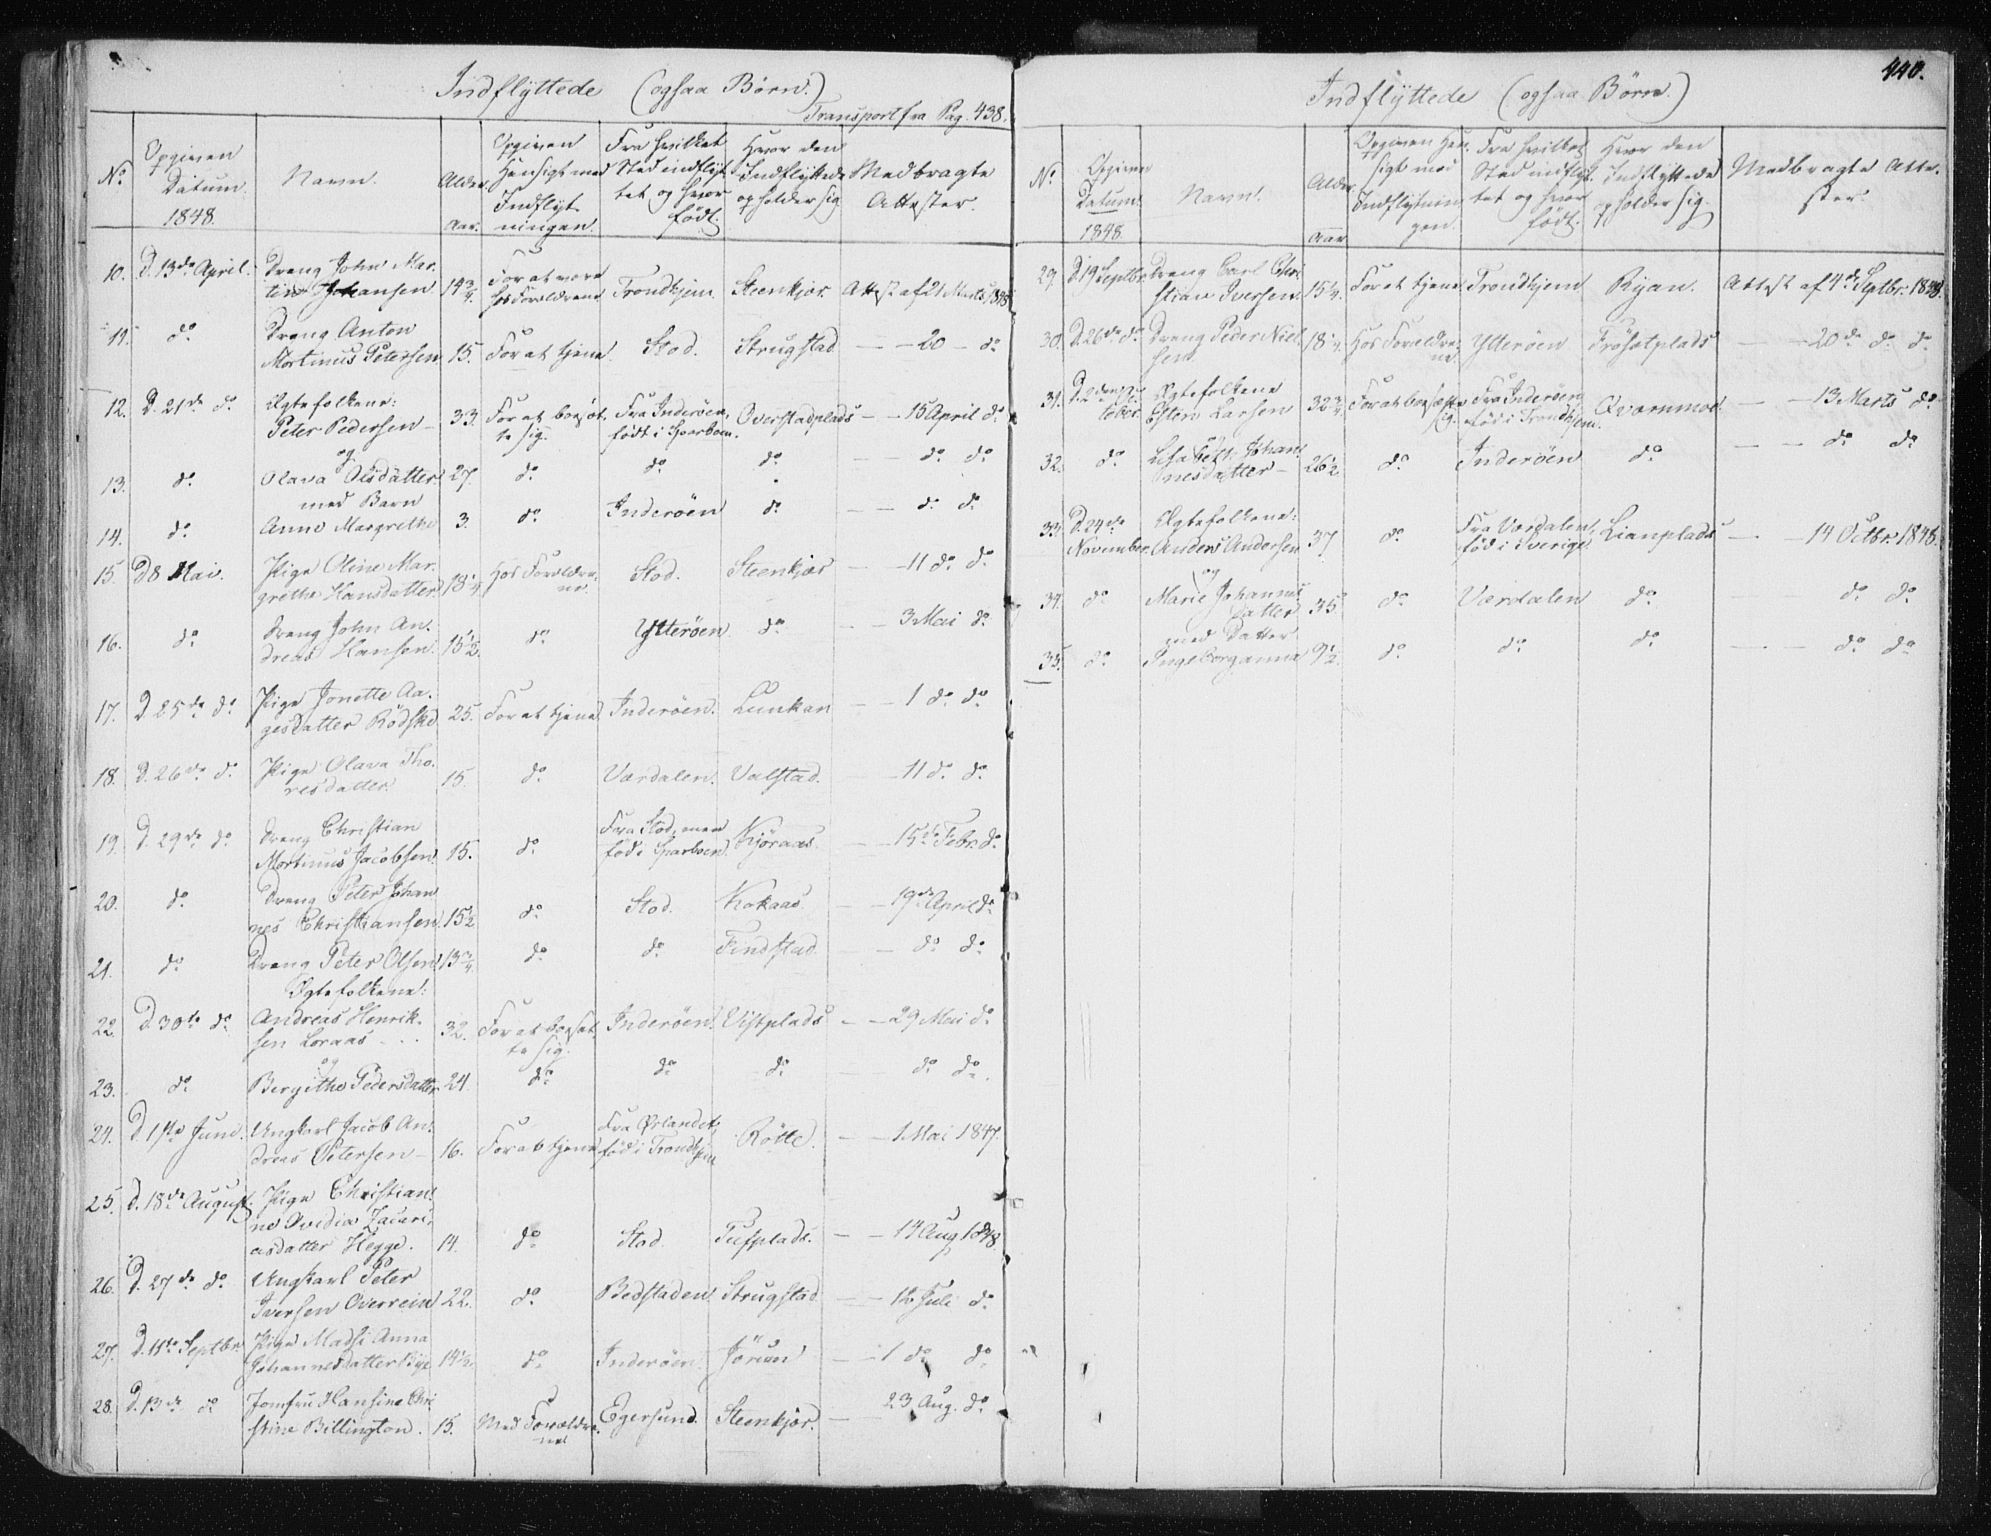 Indflyttede (ogsaa Børn.)
Transport fra Pag. 438.
No.
Opgiven Datum. 1848.
Navn.
Alder. Aar.
Opgiven Hensigt med Indflytningen.
Fra hvilket Sted indflyttet og hvor født.
Hvor den Indflyttede opholder sig
Medbragte Attester.
10. D. 13de April. Dreng John Martin Johansen 14 3/4 For at være hos Forældrene Trondhjem Steenkjær. Attest af 21 Marts 1848
11. do Dreng Anton Mortinus Petersen 15. For at tjene Stod. Strugstad — — 20 — do
12. D. 21de do. Ægtefolkene: Peter Pedersen — 33. For at bosætte sig. Fra Inderøen, født i Sparboen. Overstadplads — — 15 April do
og
13. do. Olava Olsdatter 27. do. do. do — — do do
med Barn
14. do. Anne Margrethe 3. do. Inderöen do — — do. do
15. D 8 Mai. Pige Oline Margrethe Hansdatter 18 1/4 Hos Forældrene. Stod. Steenkjær — — 11 do. do.
16. do. Dreng John Andreas Hansen. 15 1/2. do. Ytteröen. do. — — 3 Mai do
17. D 25de do. Pige Jonette Aagesdatter Rödske 25. For at tjene Inderöen. Lunkan — — 1 do. do
18. D. 26de do. Pige Olava Thoresdatter. 15. do. Værdalen. Valstad. — — 11 do. do.
19. D. 29de do Dreng Christian Mortinus Jacobsen 15. do. Fra Stod, men föd i Sparboen Kjöraas. — — 15de Febr. do
20. do. Dreng Peter Johannes Christiansen 15 1/2 do Stod. Kokaas. — — 19de April do
21. do. Dreng Peter Olsen 13 3/4. do. do. Findstad. — — do. do.
Ægtefolkene:
22. D. 30te do. Andreas Henriksen Loraas 32. For at bosætte sig. Inderöen. Vistplads — — 29 Mai do
og
23. do. Bergithe Pedersdatter 24. do. do do. — — do do.
24. D. 1ste Juni. Ungkarl Jacob Andreas Petersen — 16. For at tjene Fra Ørlandet, föd i Trondhjem Rötte. — — 1 Mai 1847.
25. D. 18de August. Pige Christianne Ovidia Zacariasdatter Hegge. 14. do. Stod. Tufplads. — — 14 Aug. 1848
26. D. 27de do. Ungkarl Peter Iversen Overrein 22. do. Bedstaden. Strugstad — — 12 Juli do.
27. D. 11te Septbr. Pige Madsi Anna Johannesdatter Bye 14 1/2. do. Inderöen. Jörum — — 1 do do.
28. D. 13de do Jomfru Hansine Christine Billington. 15. Med Forældrene Egersund. Steenkjær. — — 23 Aug. do
440.
Indflyttede (ogsaa Børn.)
No.
Opgiven Datum. 1848.
Navn.
Alder. Aar
Opgiven Hensigt med Indflytningen.
Fra hvilket Sted indflyttet og hvor født.
Hvor den Indflyttede opholder sig.
Medbragte Attester.
29. D. 19 Septbr. Dreng Carl Christian Iversen. 15 1/4. For at tjene. Trondhjem Ryan. Attest af 4de Septbr. 1848.
30. D. 26de do Dreng Peder Nielsen 18 1/4. Hos Forældrene Ytteröen Frösetplads — — 20de do. do.
31. D. 2den October. Ægtefolkene Esten Larsen 32 3/4 For at bosætte sig. Fra Inderöen föd i Trondhjem. Qvarnmoe. — — 13 Marts do.
og
32. do. Lisabeth Johannesdatter — 26 1/2 do Inderöen do — — do do
33. D. 24de November. Ægtefolkene: Anders Andersen 37 do. Fra Værdalen, föd i Sverige. Lianplads — — 14 Octbr. 1848.
og
34. do. Marie Johannesdatter 35 do. Værdalen do. — — do. do.
med Datter
35. do. Ingeborganna 9 1/2. do. do do — — do. do.